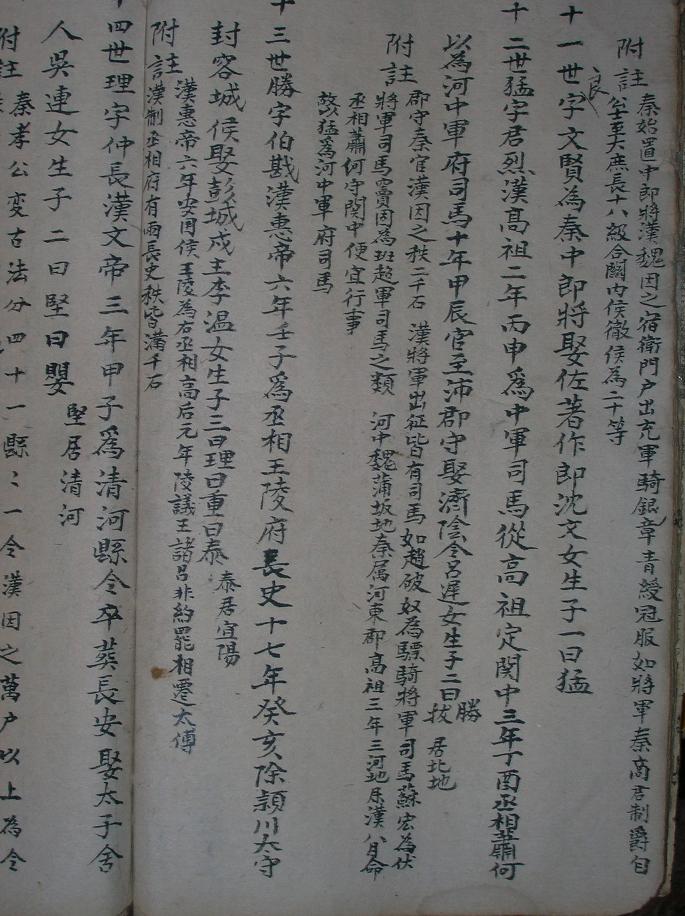 附註
秦始置中郎將漢魏因之宿衛門户出充軍騎銀章青綬冠服如將軍秦商君制爵自
公至大庶長十八級合關內侯徹侯為二十等
十一世宇文賢為秦中郎將娶佐著作郎沈文女生子一曰猛
良
十二世猛字君烈漢高祖二年丙申為中軍司馬從高祖定関中三年丁酉丞相蕭何
以為河中軍府司馬十年甲辰官至沛郡守娶濟陰令呂遲女生子二曰
勝
拔居北地
附註
郡守秦官漢因之秩二千石 漢將軍出征皆有司馬如趙破奴為驃騎將軍司馬蘇宏為伏
將軍司馬竇因為班超軍司馬之類 河中魏蒲坂地秦属河東郡高祖三年三河地属漢八月命
丞相蕭何守関中便宜行事
故以猛為河中軍府司馬
十三世勝字伯戡漢惠帝六年壬子為丞相王陵府長史十七年癸亥除潁川太守
封容城侯娶彭城戍主李温女生子三曰理曰重曰泰
泰居宜陽
附註
漢惠帝六年安国侯王陵為右丞相高后元年陵議王諸呂非約罷相遷太傅
漢制丞相府有両長史秩皆滿千石
十四世理字仲長漢文帝三年甲子為清河縣令卒葬長安娶太子舍
人吳連女生子二曰堅曰嬰
堅居清河
附註
秦孝公変古法分四十一縣〻一令漢因之萬户以上為令